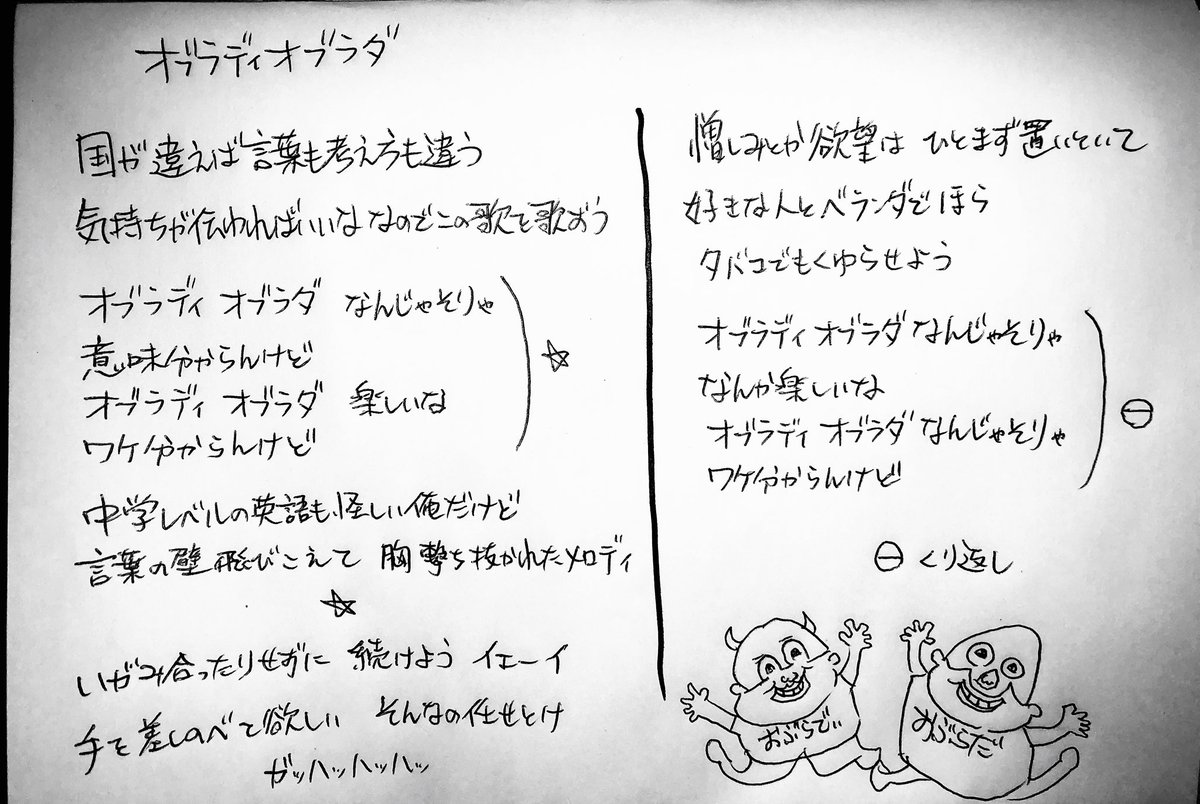 オブラディオブラダ
国が違えば言葉も考え方も違う
気持ちが伝わればいいな なのでこの歌を歌おう
オブラディ オブラダ なんじゃそりゃ
意味分からんけど
オブラディ オブラダ 楽しいな
ワケ分からんけど
☆
中学レベルの英語も怪しい俺だけど
言葉の壁飛びこえて 胸撃ち抜かれたメロディ
☆
いがみ合ったりせずに 続けよう イエーイ
手を差しのべて欲しい そんなの任せとけ
ガッハッハッハッ
憎しみとか欲望は ひとまず置いといて
好きな人とベランダでほら
タバコでもくゆらせよう
オブラディ オブラダ なんじゃそりゃ
なんか楽しいな
オブラディ オブラダ なんじゃそりゃ
ワケ分からんけど
⊖
⊖ くり返し
おぶらでぃ
おぶらだ